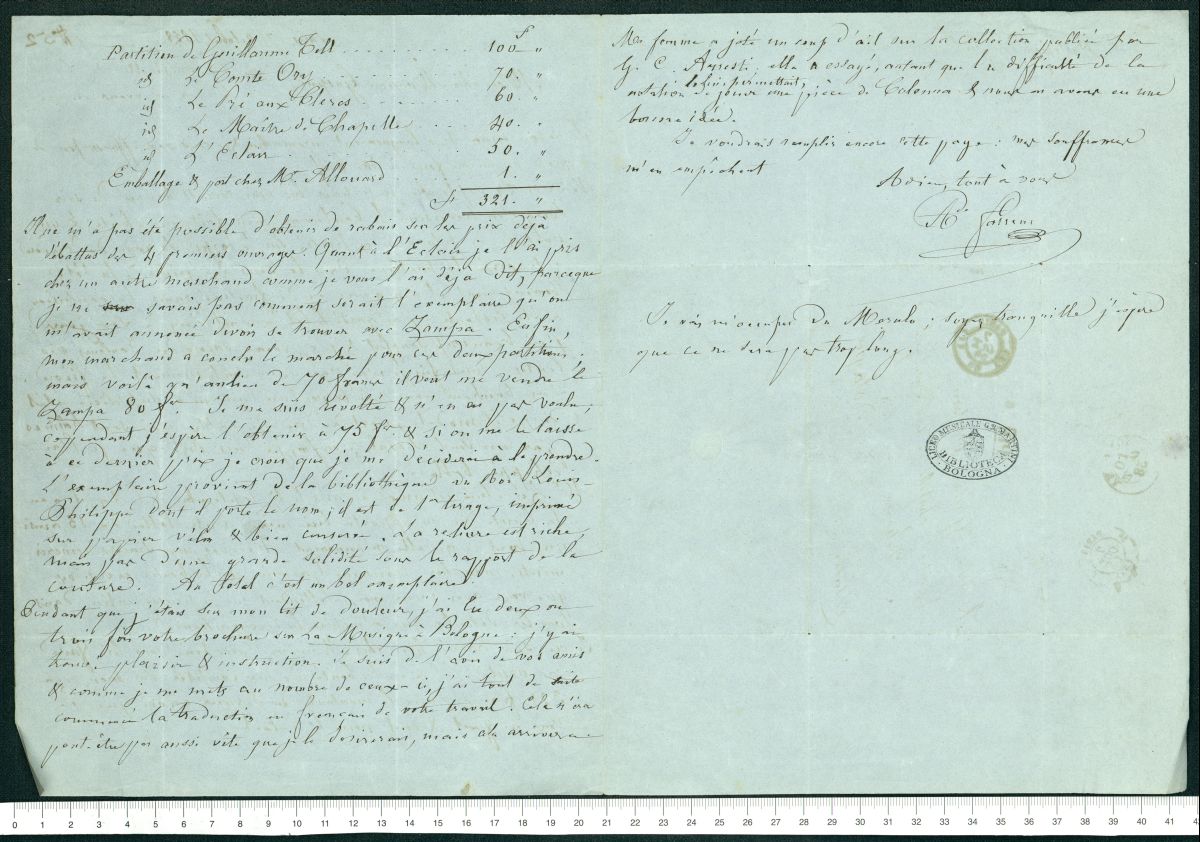 Partition de Guillaume Tell ........ 100f "
id Le Comte Ory ........ 70. "
id Le Pré aux Clercs ........ 60. "
id Le Maître de Chapelle .... 40. "
id L'Eclair ........ 50. "
Emballage & port chez Mr. Allouard .... 1. "
fr 321. "
Il ne m'a pas été possible d'obtenir de rabais sur les prix déjà
débattus des 4 premiers ouvrages. Quant à l'Eclair je l'ai pris
chez un autre marchand comme je vous l'ai déjà dit, parceque
je ne savais pas comment serait l'exemplaire qu'on
m'avait annoncé devoir se trouver avec Zampa. Enfin,
mon marchand a conclu le marché pour ces deux partitions.
mais voilà qu'aulieu de 70 francs il veut me vendre le
Zampa 80 fr. Je me suis révolté & n'en ai pas voulu,
cependant j'espère l'obtenir à 75 fr. & si on me le laisse
à ce dernier prix je crois que je me déciderai à le prendre.
L'exemplaire provient de la bibliothèque du Roi Louis-
Philippe dont il porte le nom; il est de 1er tirage, imprimé
sur papier vélin & bien conservé. La reliure est riche,
mais pas d'une grande solidité sous le rapport de la
couture. Au total c'est un bel exemplaire.
Pendant que j'étais sur mon lit de douleur, j'ai lu deux ou
trois fois votre brochure sur La Musique à Bologne: j'y ai
trouvé plaisir & instruction. Je suis de l'avis de vos amis
& comme je me mets au nombre de ceux-ci, j'ai tout de suite
commencé la traduction en français de votre travail. Cela n'ira
peut-être pas aussi vite que je le désirerais, mais cela arrivera.
Ma femme a jeté un coup d'œil sur la collection publiée par
G. C. Arresti: elle a essayé, autant que la difficulté de la
notation le lui permettait, de jouer une pièce de Colonna & nous en avons eu une
bonne idée.
Je voudrais remplir encore cette page: mes souffrances
m'en empêchent
Adieu, tout à vous
Je vais m'occuper du : soyez tranquille j'espère
que ce ne sera pas trop long.
LICEO MUSICALE G.B. MARTINI
BIBLIOTECA
BOLOGNA
0 1 2 3 4 5 6 7 8 9 10 11 12 13 14 15 16 17 18 19 20 21 22 23 24 25 26 27 28 29 30 31 32 33 34 35 36 37 38 39 40 41